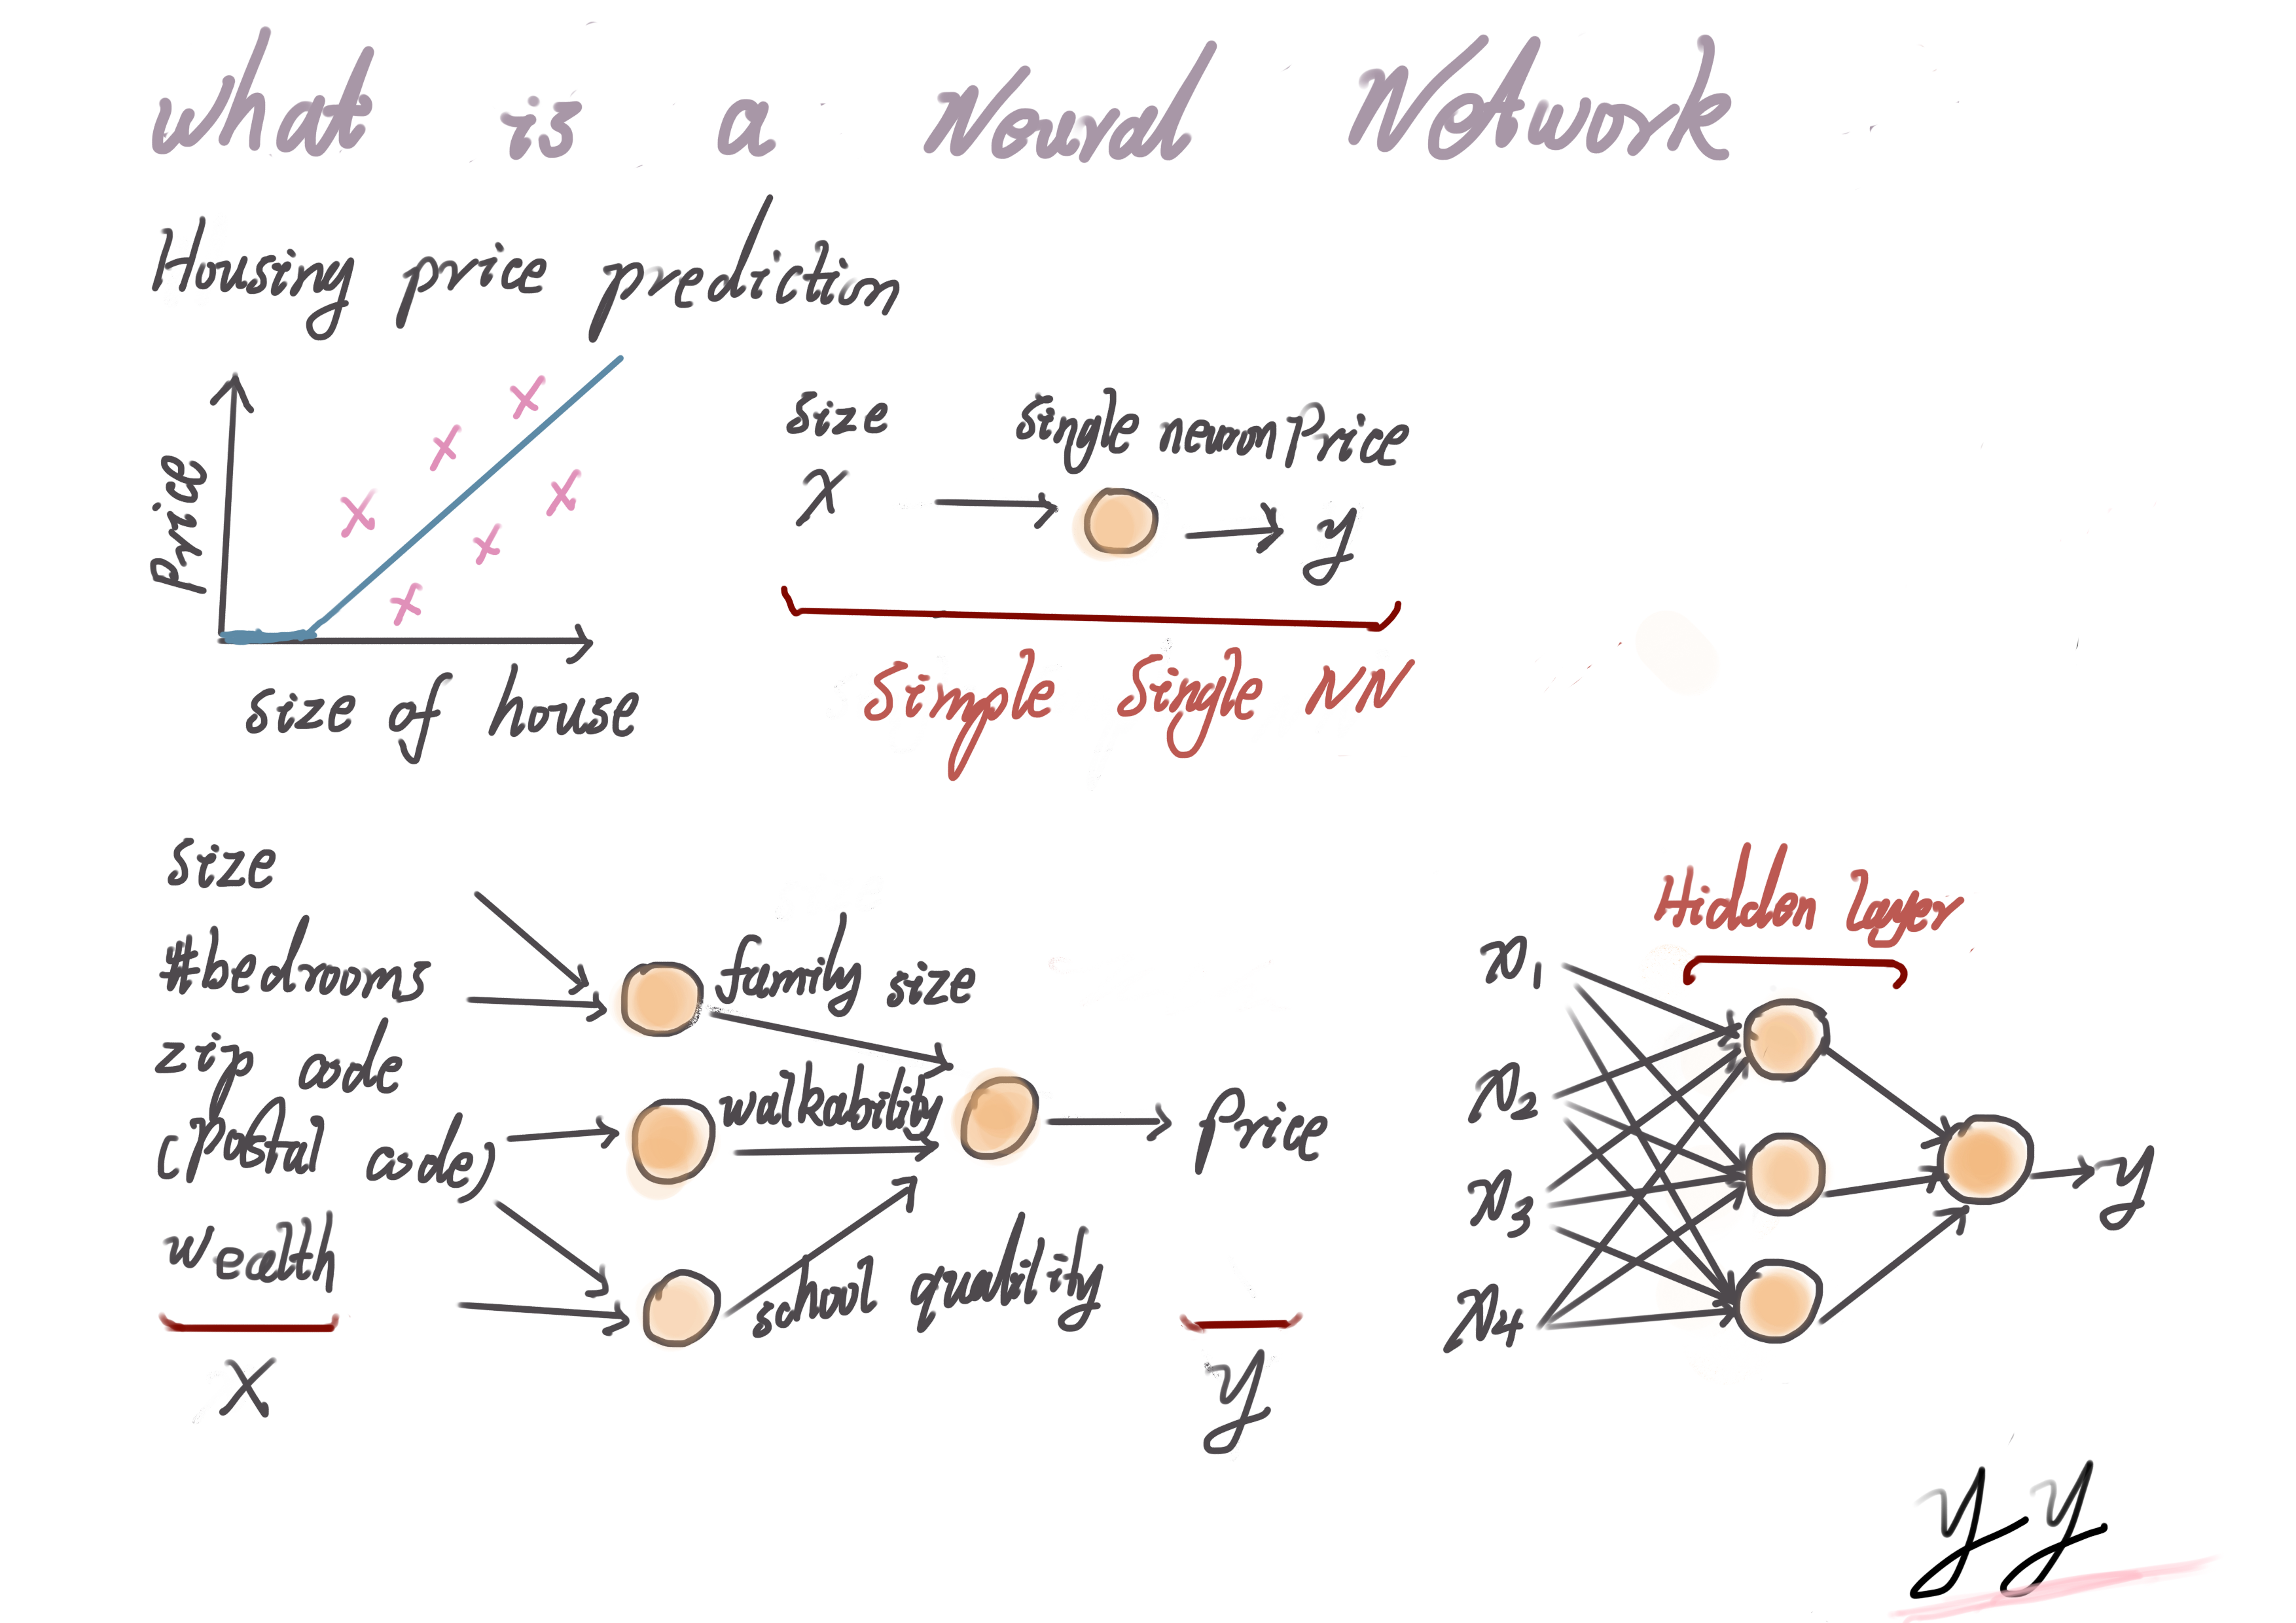 what is a Neural Network
Housing price prediction
Price
size of house
size
single neuron
Price
X
y
Simple Single NN
size
#bedrooms
zip code
(Postal code)
wealth
X
family size
walkability
school quality
Price
y
Hidden layer
x1
x2
x3
x4
y
yy